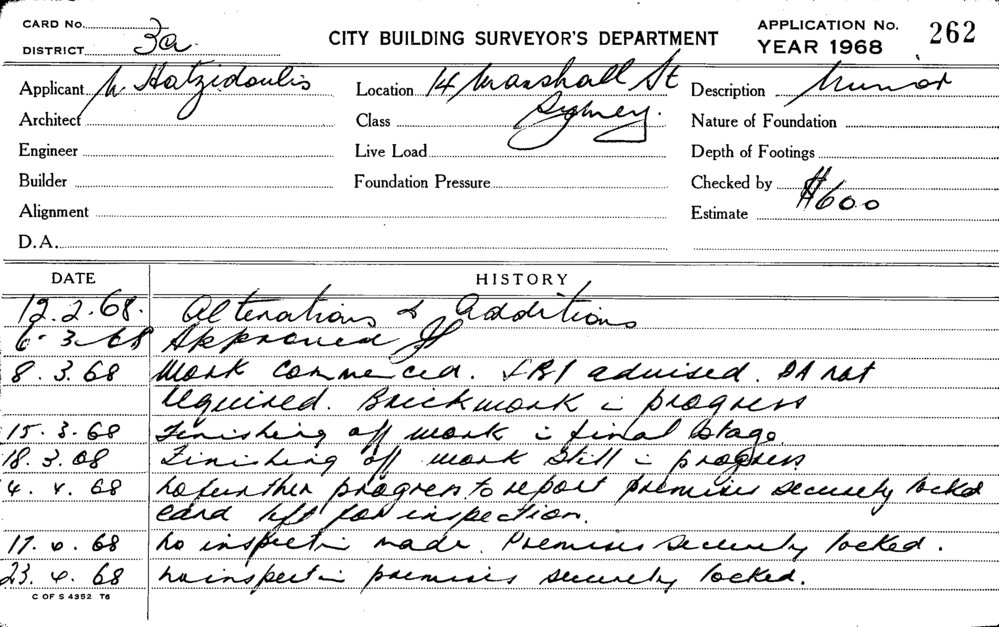 CARD No.
DISTRICT 3a.
CITY BUILDING SURVEYOR'S DEPARTMENT
APPLICATION No. 262
YEAR 1968
Applicant N Hatzidoulis
Location 14 Marshall St
Sydney.
Description Minor
Architect
Class
Nature of Foundation
Engineer
Live Load
Depth of Footings
Builder
Foundation Pressure
Checked by
Alignment
Estimate $600
D.A.
DATE HISTORY
12.2.68. Alterations & Additions
6.3.68 Approved
8.3.68 Work commenced. advised. DA not
required. Brickwork in progress
15.3.68 Finishing off work in final stage.
18.3.68 Finishing off work still in progress
4.4.68 No further progress to report premises securely locked
card left for inspection.
17.4.68 No inspectn made. Premises securely locked.
23.4.68 No inspectn premises securely locked.
C OF S 4392 T6